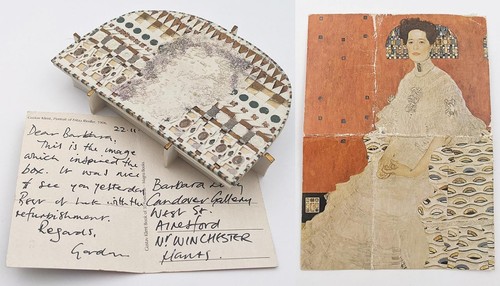 Gustav Klimt, Portrait of Fritza Riedler, 1906
22-11
Dear Barbara,
This is the image
which inspired the
box. It was nice
to see you yesterday
Best of luck with the
refurbishment.
Regards,
Gordon
Gustav Klimt Book of
Barbara
Candover Gallery
West St.
Alresford
Nr WINCHESTER
Hants.